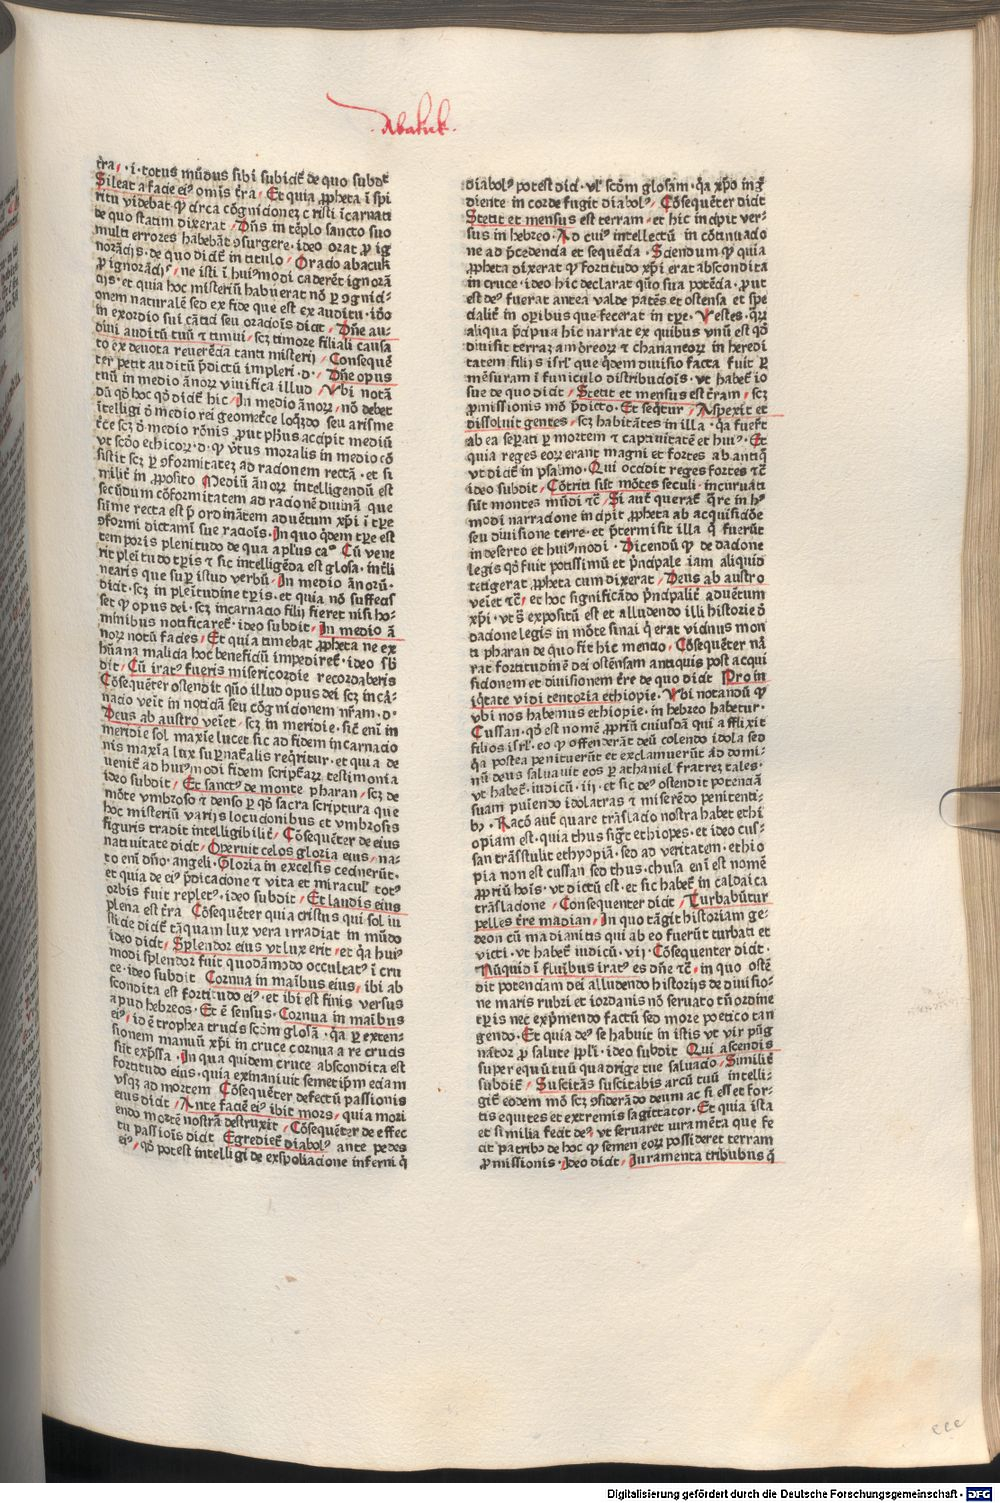 Abakuk.
t̄ra, ·i· totus mūdus sibi subicit̄ de quo subdt̄
Sileat a facie eiꝰ omīs t̄ra, Et quia ꝓpheta ī spi
ritu videbat ꝙ circa cōgnicionez cristi īcarnati
de quo statim dixerat, Dn̄s in tēplo sancto suo
multi errores habebāt ꝯsurgere · ideo orat ꝓ ig
norācijs · de quo dicit̄ in titulo, Oracio abacuk
ꝓ ignorācijs, ne isti ī huiꝰmodi caderēt ignorā
cijs · et quia hoc misteriū habuerat nō ꝑ ꝯgnici-
onem naturalē sed ex fide que est ex auditu · iō
in exordio sui cātici seu oracōis dicit, Dn̄e au-
diui auditū tuū ⁊ timui, scz timore filiali causa
to ex deuota reuerēcia tanti misterij, Consequē
ter petit auditū p̄dictū impleri · d · Dn̄e opus
tuū in medio ānoꝝ viuifica illud, Vbi notā
dū qō hoc qō dicit̄ hic, In medio ānoꝝ, nō debet
ītelligi ō medio rei geometr̄ce loqn̄do seu arisme
tr̄ce scz ō medio rōnis, ꝓut ph̄us accipit mediū
vt scd̄o ethicoꝝ · d · ꝙ v̄tus moralis in medio cō
sistit scz ꝑ ꝯformitatez ad racionem rectā · et si
milit̄ in ꝓposito Mediū ānoꝝ intelligendū est
secūdum cōformitatem ad racionē diuinā que
sūme recta est p̄ ordinātem aduētum xp̄i ī tp̄e
ꝯformi dictami sue racōis · In quo qd̄em tp̄e est
temporis plenitudo de qua aplus ca° Cū vene
rit plēitudo tp̄is ⁊ sic intelligēda est glosa · int̄li
nearis que suꝑ istud verbū, In medio ānorū ·
dicit · scz in plēitudine tp̄is · et quia nō suffecis
set ꝙ opus dei · scz incarnacio filij fieret nisi ho-
minibus notificaret̄ · ideo subdit, In medio ā
noꝝ notū facies, Et quia timebat ꝓpheta ne ex
hūana malicia hoc beneficiū impediret̄ · ideo sb̄
dit, Cū iratꝰ fueris misericordie recordaberis
Cōsequēter ostendit qūo illud opus dei scz incā-
nacio veīt in noticiā seu cōgnicionem nr̄am · d ·
Deus ab austro veīet, scz in meridie · sic̄ enī in
meridie sol maxīe lucet sic ad fidem incarnacio
nis maxīa lux suꝑnat̄alis req̄ritur · et quia de
uenit̄ ad huiꝰmodi fidem script̄aꝝ testimonia
ideo subdit, Et sanctꝰ de monte pharan, scz de
mōte vmbroso ⁊ denso ꝑ qō sacra scriptura que
hoc misteriū varijs locucionibus et vmbrosis
figuris tradit intelligibilit̄, Cōsequēter de eius
natiuitate dicit, Operuit celos gloria eius, na-
to enī dn̄o · angeli · Gloria in excelsis cecinerūt ·
et quia de eiꝰ p̄dicacione ⁊ vita et miracul' totꝰ
orbis fuit repletꝰ · ideo subdit, Et laudis eius
plena est t̄ra Cōsequēter quia cristus qui sol iu
sticie dicit̄ tāquam lux vera irradiat in mūdo
ideo dicit, Splendor eius vt lux erit, et q̄a huiꝰ
modi splendor fuit quodāmodo occultatꝰ ī cru
ce · ideo subdit Cornua in maībus eius, ibi ab
scondita est fortitudo eiꝰ · et ibi est finis versus
apud hebreos · Et ē sensus · Cornua in maībus
eiꝰ, id ē trophea crucis scd̄m glosā · q̄a ꝑ exten-
sionem manuū xp̄i in cruce cornua a re crucis
sūt exp̄ssa · In qua quidem cruce abscondita est
fortitudo eius · quia exinaniuit semetip̄m eciam
vsqꝫ ad mortem Cōsequēter defectū passionis
eius dicit, Ante faciē eiꝰ ibit mors, quia mori
endo mortē nostrā destruxit, Cōsequēter de effec
tu passiōis dicit Egrediet̄ diabolꝰ ante pedes
eiꝰ, qō potest intelligi de exspoliacione inferni q̄
diabolꝰ potest dici · vl' scd̄m glosam · q̄a xp̄o īng̊
diente in corde fugit diabolꝰ, Cōsequēter dicit
Stetit et mensus est terram, et hic incipit ver-
sus in hebreo · Ad cuiꝰ intellectū in cōtinuacio
ne ad p̄cedencia et sequēcia · Sciendum ꝙ quia
ꝓpheta dixerat ꝙ fortitudo xp̄i erat abscondita
in cruce · ideo hic declarat quō sua potēcia, ꝓut
est deꝰ fuerat antea valde patēs et ostensa et spe
cialit̄ in opibus que fecerat in tp̄e · V estes · qꝝ
aliqua p̄cipua hic narrat ex quibus vnū est qō
diuisit terraz amōreoꝝ ⁊ chananeoꝝ in heredi
tatem filijs isr̄l' que qd̄em diuisio facta fuit ꝑ
mēsuram ī funiculo distribucōis · vt habet̄ io
sue de quo dicit, Stetit et mensus est t̄ram, scz
ꝓmissionis mō p̄dicto · Et seq̄tur, Aspexit et
dissoluit gentes, scz habitātes in illa · q̄a fuerūt
ab ea seꝑati ꝑ mortem ⁊ captiuitatē et huiꝰ · Et
quia reges eoꝝ erant magni et fortes ab antiq̄
vt dicit̄ in psalmo · Qui occidit reges fortes ⁊c̄
ideo subdit, Cōtriti sūt mōtes seculi · incuruati
sūt montes mūdi ⁊c̄, Si aut̄ querat̄ q̄re in hꝰ
modi narracione incipit ꝓpheta ab acquisiciōe
seu diuisione terre · et p̄termisit illa q̄ fuerūt
in deserto et huiꝰmodi · Dicendū ꝙ de dacione
legis qō fuit potissimū et p̄ncipale iam aliquid
tetigerat ꝓpheta cum dixerat, Deus ab austro
veīet ⁊c̄, et hoc significādo p̄ncipalit̄ aduētum
xp̄i · vt s̄ expositū est et alludendo illi historie ō
dacione legis in mōte sinai q̄ erat vicinus mon
ti pharan de quo fit hic mencio, Cōsequēter nā
rat fortitudinē dei ostēsam antiquis post acqui
sicionem et diuisionem t̄re de quo dicit Pro in
iq̄tate vidi tentoria ethiopie · Vbi notandū ꝙ
vbi nos habemus ethiopie · in hebreo habetur ·
Cussan · qō est nomē ꝓpriū cuiusdā qui afflixit
filios isr̄l · eo ꝙ offenderāt deū colendo idola sed
q̄a postea penituerūt et exclamuerūt ad domi-
nū deus saluauit eos ꝑ athaniel fratrez tales ·
vt habet̄ · iudicū · iij · et sic deꝰ ostendit potenciā
suam puīendo idolatras ⁊ miserēdo penitenti-
bꝫ · Racō aut̄ quare trāslacio nostra habet ethi
opiam est · quia thus sigt̄ ethiopes · et ideo cus-
san trāstulit ethyopiā · sed ad veritatem · ethio
pia non est cussan sed thus · chusa enī est nomē
ꝓpriū hoīs · vt dictū est · et sic habet̄ in caldaica
trāslacione, Consequenter dicit, Turbabūtur
pelles t̄re madian, In quo tāgit historiam ge-
deon cū madianitis qui ab eo fuerūt turbati et
victi · vt habet̄ iudicū · vij · Cōsequenter dicit ·
Nūquid ī fluībus iratꝰ es dn̄e ⁊c̄, in quo ostē
dit potenciam dei alludendo historijs de diuisio-
ne maris rubri et iordanis nō seruato tn̄ ordine
tp̄is nec exp̄mendo factū sed more poetico tan
gendo · Et quia deꝰ se habuit in istis vt vir pūg
nātor ꝓ salute pp̄li · ideo subdit Qui ascendis
super equū tuū quadrige tue saluacio, Similit̄
subdit̄, Suscitās suscitabis arcū tuū intelli-
git̄ eodem mō scz ꝯsiderādo deum ac si esset for-
tis equites et extremis sagittator · Et quia ista
et similia fecit deꝰ vt seruaret iuramēta que fe
cit patribꝰ de hoc ꝙ semen eoꝝ possideret terram
ꝓmissionis · Ideo dicit, Iuramenta tribubus q̄
eee
Digitalisierung gefördert durch die Deutsche Forschungsgemeinschaft - DFG